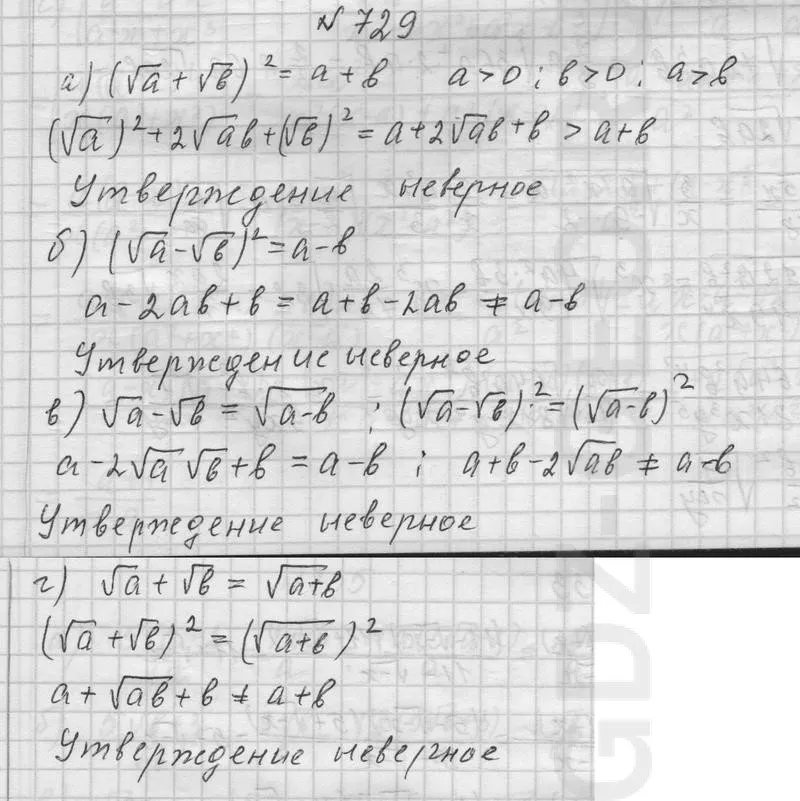 № 729
а) (√a + √b)² = a + b   a > 0 ; b > 0 ; a > b
(√a)² + 2√ab + (√b)² = a + 2√ab + b > a + b
Утверждение неверное
б) (√a - √b)² = a - b
a - 2ab + b = a + b - 2ab ≠ a - b
Утверждение неверное
в) √a - √b = √(a-b) ; (√a - √b)² = (√a-b)²
a - 2√a √b + b = a - b ; a + b - 2√ab ≠ a - b
Утверждение неверное
г) √a + √b = √(a+b)
(√a + √b)² = (√(a+b))²
a + √ab + b ≠ a + b
Утверждение неверное